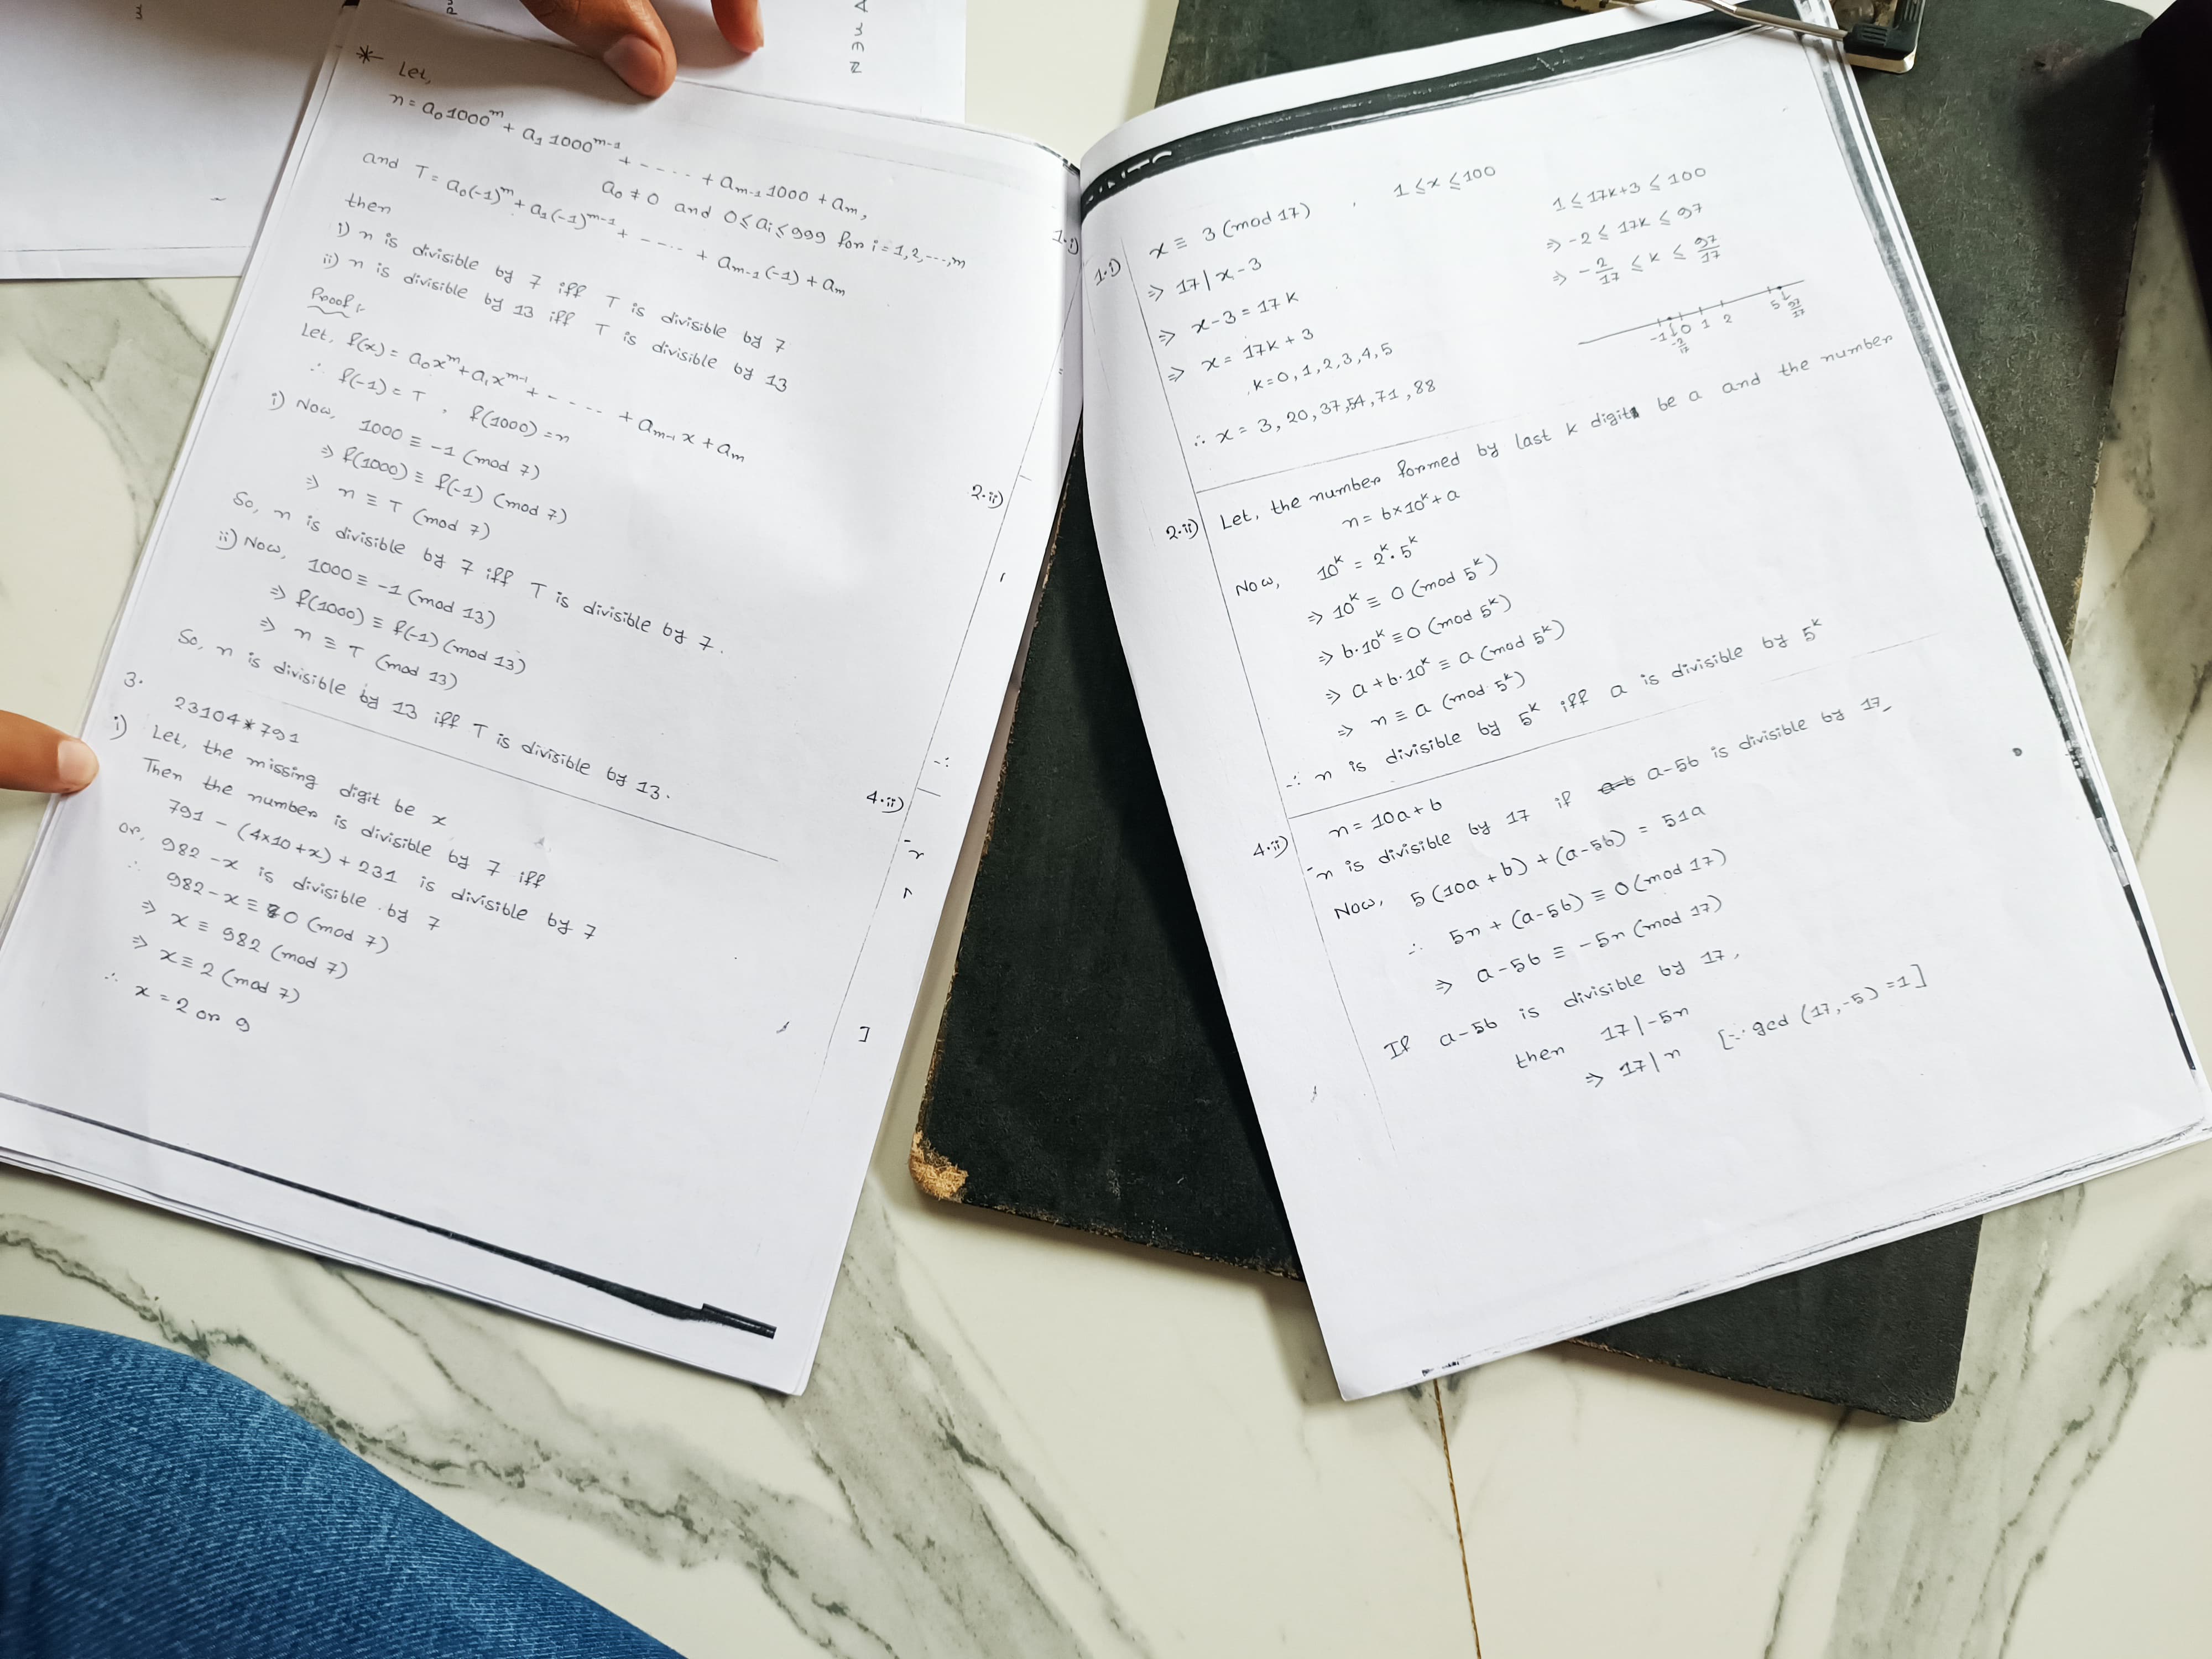 * Let,
n = a₀1000ᵐ + a₁1000ᵐ⁻¹ + - - - - + aₘ₋₁1000 + aₘ,
a₀ ≠ 0 and 0 ≤ aᵢ ≤ 999 for i = 1,2,---,m
and T = a₀(-1)ᵐ + a₁(-1)ᵐ⁻¹ + - - - - + aₘ₋₁(-1) + aₘ
then
i) n is divisible by 7 iff T is divisible by 7
ii) n is divisible by 13 iff T is divisible by 13
Proof:-
Let, f(x) = a₀xᵐ + a₁xᵐ⁻¹ + - - - - + aₘ₋₁x + aₘ
∴ f(-1) = T , f(1000) = n
i) Now, 1000 ≡ -1 (mod 7)
⇒ f(1000) ≡ f(-1) (mod 7)
⇒ n ≡ T (mod 7)
So, n is divisible by 7 iff T is divisible by 7.
ii) Now, 1000 ≡ -1 (mod 13)
⇒ f(1000) ≡ f(-1) (mod 13)
⇒ n ≡ T (mod 13)
So, n is divisible by 13 iff T is divisible by 13.
3. 23104*791
i) Let, the missing digit be x
Then the number is divisible by 7 iff
791 - (4×10+x) + 231 is divisible by 7
or, 982 - x is divisible by 7
∴ 982 - x ≡ 0 (mod 7)
⇒ x ≡ 982 (mod 7)
⇒ x ≡ 2 (mod 7)
∴ x = 2 or 9
1.i)
2.ii)
4.ii)
1.i) x ≡ 3 (mod 17) , 1 ≤ x ≤ 100
⇒ 17 | x-3
⇒ x-3 = 17k
⇒ x = 17k + 3
k = 0, 1, 2, 3, 4, 5
∴ x = 3, 20, 37, 54, 71, 88
1 ≤ 17k+3 ≤ 100
⇒ -2 ≤ 17k ≤ 97
⇒ -2/17 ≤ k ≤ 97/17
-1 0 1 2 5
-2/17 97/17
2.ii) Let, the number formed by last k digits be a and the number
n = b×10ᵏ + a
Now, 10ᵏ = 2ᵏ. 5ᵏ
⇒ 10ᵏ ≡ 0 (mod 5ᵏ)
⇒ b.10ᵏ ≡ 0 (mod 5ᵏ)
⇒ a + b.10ᵏ ≡ a (mod 5ᵏ)
⇒ n ≡ a (mod 5ᵏ)
∴ n is divisible by 5ᵏ iff a is divisible by 5ᵏ
4.ii) n = 10a + b
n is divisible by 17 if a-5b is divisible by 17
Now, 5(10a + b) + (a-5b) = 51a
∴ 5n + (a-5b) ≡ 0 (mod 17)
⇒ a-5b ≡ -5n (mod 17)
If a-5b is divisible by 17,
then 17 | -5n
⇒ 17 | n [∵ gcd (17,-5) = 1]